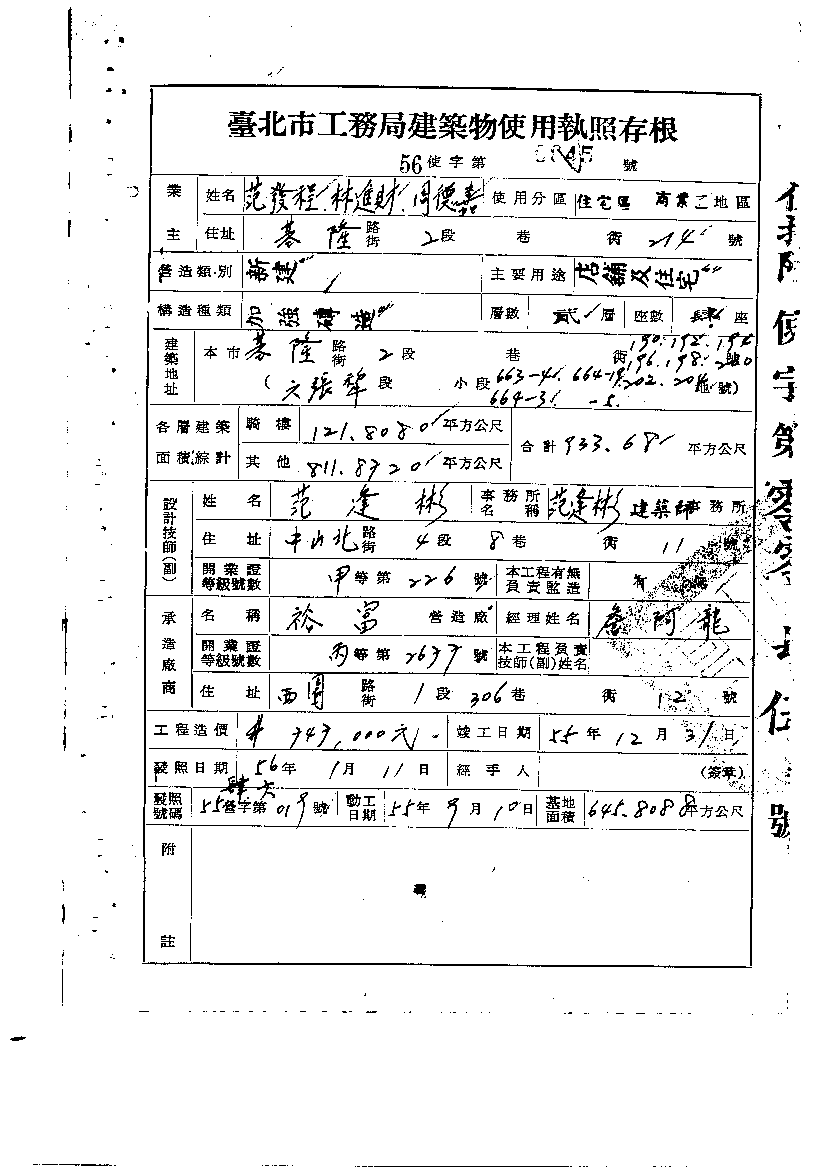 臺北市工務局建築物使用執照存根
56使字第 號
業主 姓名 范發程 林進財 周德善 使用分區 住宅區 商業 地區
住址 基隆路街 2段 巷 街 214 號
營造類別 新建 主要用途 店鋪及住宅
構造種類 加強磚造 層數 貳層 座數 座
建築地址 本市基隆路街 2段 巷 街 190.192.194 196.198.200 號
(六張犁段 小段 663-41. 664-19 202.204 地(號)
664-31 -5.
各層建築面積綜計 騎樓 121.8080平方公尺 合計933.68平方公尺
其他 811.8720平方公尺
設計技師(副) 姓名 范逢彬 事務所名稱 范逢彬建築師事務所
住址 中山北路街 4段 8巷 街 11號
開業證等級號數 甲等第226號 本工程有無負責監造 有
承造廠商 名稱 裕富 營造廠 經理姓名 詹阿龍
開業證等級號數 丙等第2637號 本工程負責技師(副)姓名
住址 西園路街 1段 306巷 街 12號
工程造價 747,000元 竣工日期 55年12月31日
發照日期 56年1月11日 經手人 (簽章)
發照號碼 55營字第019號 動工日期 55年9月10日 基地面積 645.8088平方公尺
附註
使字第零零 號